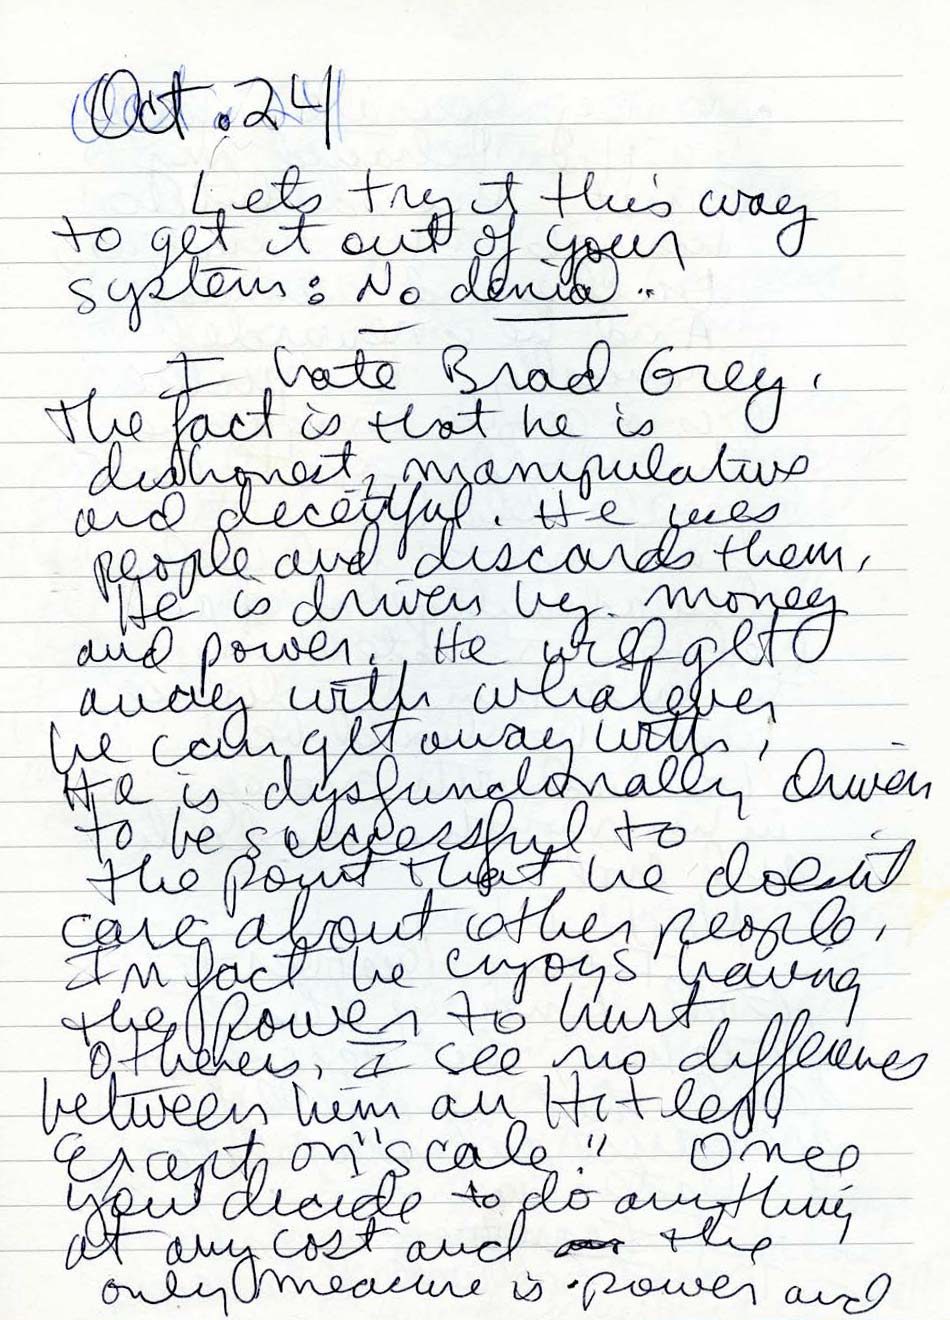 Oct. 24
Lets try it this way
to get it out of your
system: No denial..
I hate Brad Grey.
The fact is that he is
dishonest, manipulative
and deceitful. He uses
people and discards them.
He is driven by money
and power. He will get
away with whatever
he can get away with.
He is dysfunctionally driven
to be successful to
the point that he doesn't
care about other people.
In fact he enjoys having
the power to hurt
others. I see no difference
between him an Hitler
Except on "scale." Once
you decide to do anything
at any cost and the
only measure is power and